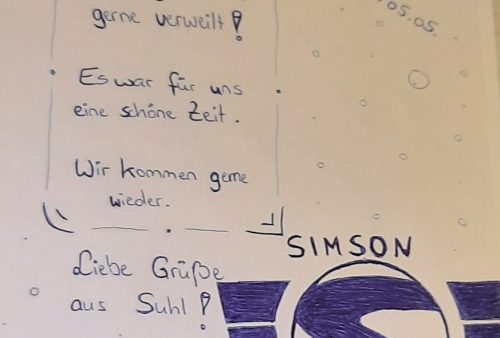 gerne verweilt!
05.05.
Es war für uns
eine schöne Zeit.
Wir kommen gerne
wieder.
Liebe Grüße
aus Suhl!
SIMSON
S